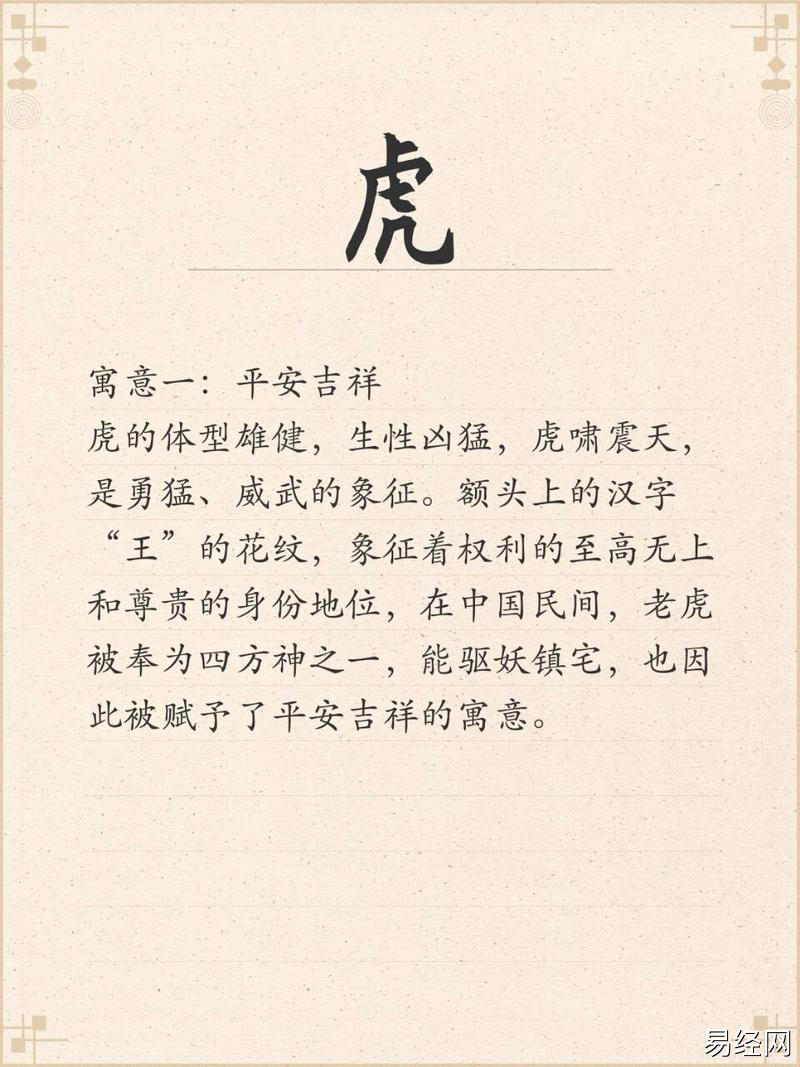 虎
寓意一：平安吉祥
虎的体型雄健，生性凶猛，虎啸震天，
是勇猛、威武的象征。额头上的汉字
“王”的花纹，象征着权利的至高无上
和尊贵的身份地位，在中国民间，老虎
被奉为四方神之一，能驱妖镇宅，也因
此被赋予了平安吉祥的寓意。
易经网